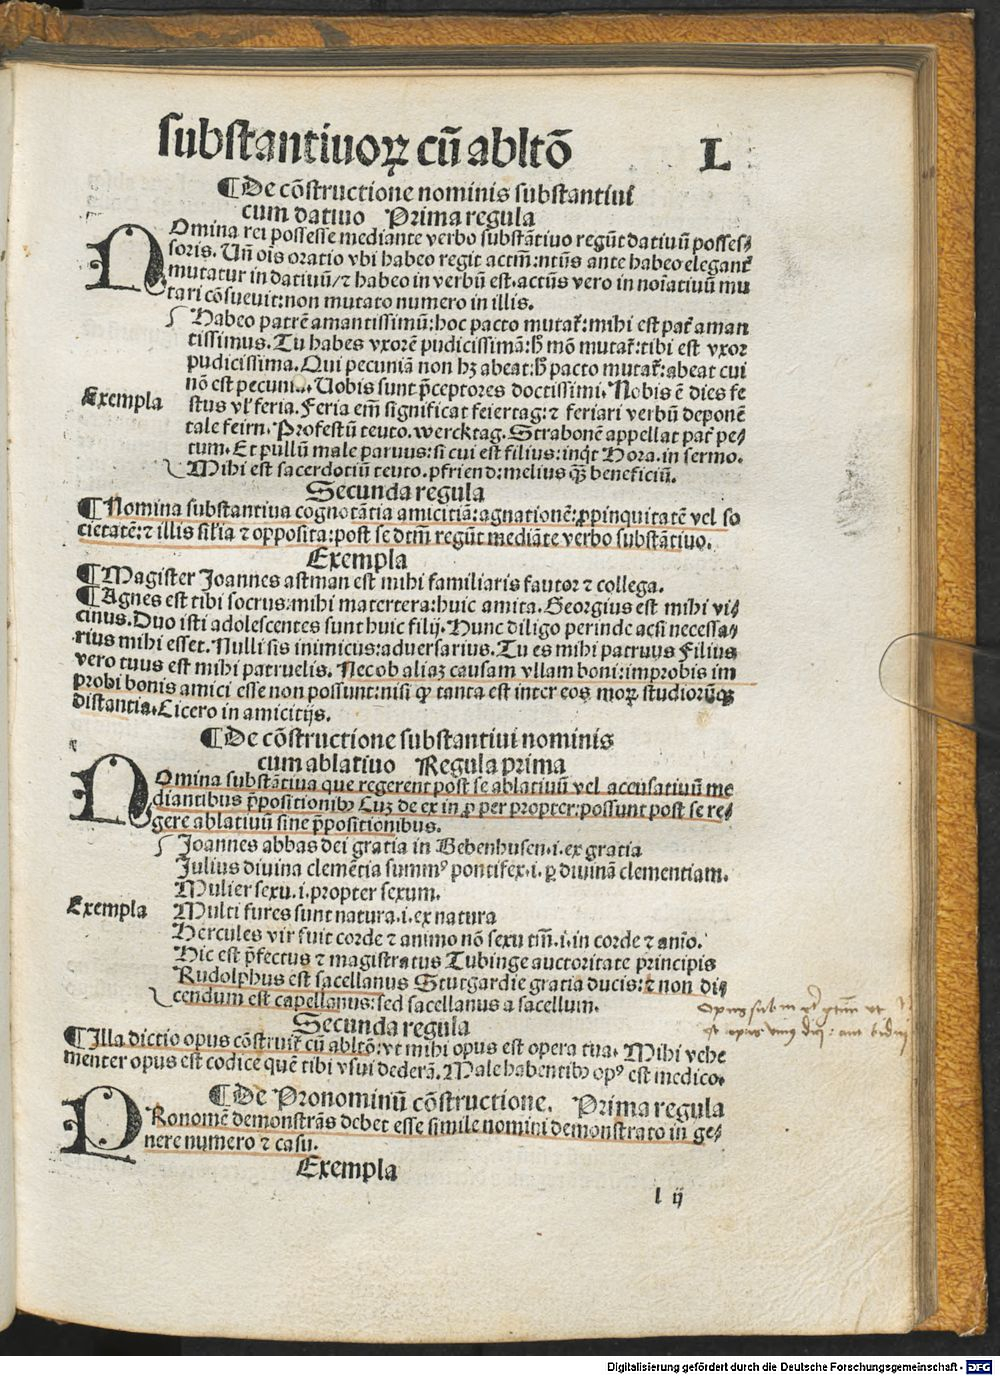 substantiuoꝝ cū abltō L
¶De cōstructione nominis substantiui
cum datiuo Prima regula
NOmina rei possesse mediante verbo substātiuo regūt datiuū posses⸗
soris. Uñ ois oratio vbi habeo regit actm̄:ntūs ante habeo elegant̄
mutatur in datiuū/⁊ habeo in verbū est.actūs vero in noīatiuū mu
tari cōsueuit:non mutato numero in illis.
Habeo patrē amantissimū:hoc pacto mutat̄:mihi est pat̄ aman
tissimus.Tu habes vxorē pudicissimā:h̄ mō mutat̄:tibi est vxor
pudicissima.Qui pecuniā non hꝫ abeat:h̄ pacto mutat̄:abeat cui
nō est pecuni... Uobis sunt p̄ceptores doctissimi.Nobis ē dies fe
Exempla
stus vl̓ feria.Feria em̄ significat feiertag:⁊ feriari verbū deponē
tale feirn.Profestū teuto.wercktag.Strabonē appellat pat̄ pe⸗
tum.Et pullū male paruus:si cui est filius:inqt̄ Hora.in sermo.
Mihi est sacerdotiū teuto.pfriend:melius qꝫ̄ beneficiū.
Secunda regula
¶Nomina substantiua cognotātia amicitiā:agnationē:ꝓpinquitatē vel so
cietatē:⁊ illis silia ⁊ opposita:post se dtm̄ regūt mediāte verbo substātiuo.
Exempla
¶Magister Joannes astman est mihi familiaris fautor ⁊ collega.
¶Agnes est tibi socrus:mihi matertera:huic amita.Georgius est mihi vi⸗
cinus.Duo isti adolescentes sunt huic filij.Hunc diligo perinde acsi necessa⸗
rius mihi esset.Nulli sis inimicus:aduersarius.Tu es mihi patruus Filius
vero tuus est mihi patruelis.Nec ob aliaꝫ causam vllam boni:improbis im
probi bonis amici esse non possunt:nisi ꝙ tanta est inter eos moꝝ studiorūqꝫ
distantia.Cicero in amicitijs.
¶De cōstructione substantiui nominis
cum ablatiuo Regula prima
NOmina substātiua que regerent post se ablatiuū vel accusatiuū me
diantibus p̄positionibꝰ Cuꝫ de ex in ꝓ per propter:possunt post se re⸗
gere ablatiuū sine p̄positionibus.
Joannes abbas dei gratia in Bebenhusen.i.ex gratia
Julius diuina clemētia summꝰ pontifex.i.ꝑ diuinā clementiam.
Mulier sexu.i.propter sexum.
Exempla
Multi fures sunt natura.i.ex natura
Hercules vir fuit corde ⁊ animo nō sexu tm̄.i.in corde ⁊ anīo.
Hic est p̄fectus ⁊ magistratus Tubinge auctoritate principis
Rudolphus est sacellanus Sturgardie gratia ducis:⁊ non di⸗
cendum est capellanus:sed sacellanus a sacellum.
Secunda regula
¶Illa dictio opus cōstruit̄ cū abltō:vt mihi opus est opera tua. Mihi vehe
menter opus est codice quē tibi vsui dederā.Male habentibꝰ opꝰ est medico.
¶De Pronominū cōstructione. Prima regula
PRonomē demonstrās debet esse simile nomini demonstrato in ge⸗
nere numero ⁊ casu.
Exempla
l ij
Digitalisierung gefördert durch die Deutsche Forschungsgemeinschaft - DFG